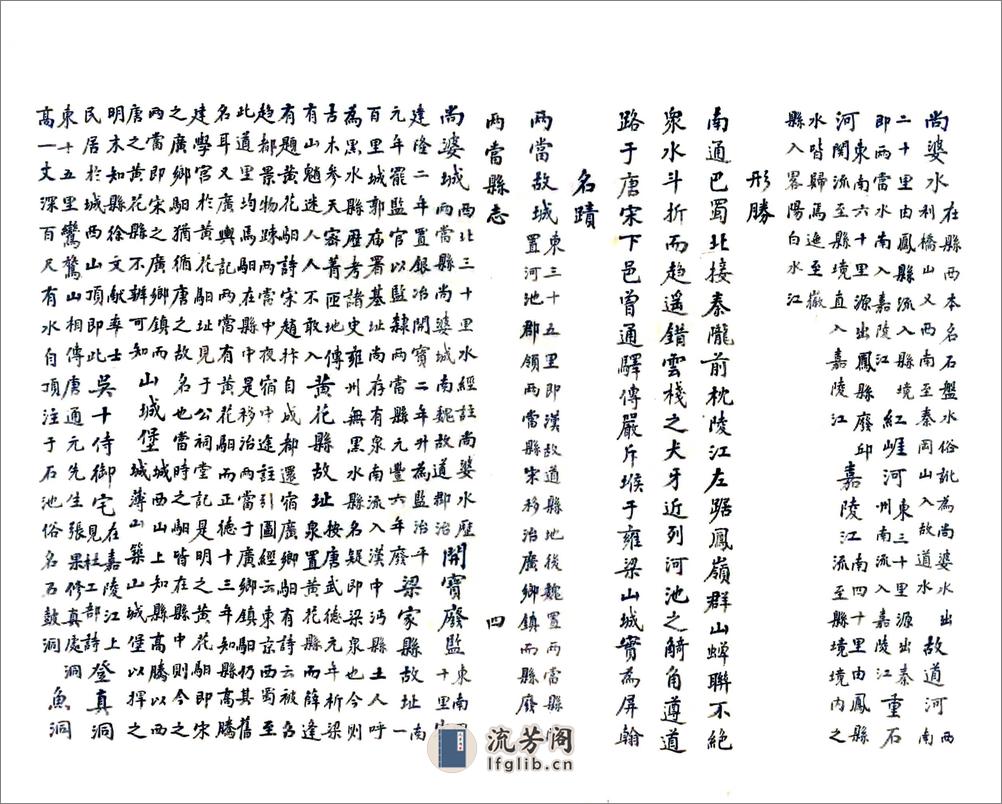 尚婆水 在縣西本名石盤水俗訛為尚婆水出
利橋山又西南至秦岡山入故道水 故道河 南西
二十里由鳳縣流入縣境
即兩當水南入嘉陵江 紅崕河 東三十里源出秦
州南流入嘉陵江 重石
河 東南六十里源出鳳縣廢邱
關流至縣境直入嘉陵江 嘉陵江 南四十里由鳳縣
流至縣境境內之
水皆歸焉迤至徽
縣入畧陽白水江
形勝
南通巴蜀北接秦隴前枕陵江左踞鳳嶺群山蟬聯不絕
眾水斗折而趋遥錯雲棧之犬牙近列河池之觭角遵道
路于唐宋下邑曾通驛傳嚴斥堠于雍梁山城實為屏翰
名蹟
兩當故城 東三十五里即漢故道縣地後魏置兩當縣
置河池郡領兩當縣宋移治廣鄉鎮而縣廢
兩當縣志 四
尚婆城 西北三十里水經註尚婆水歷
兩當縣尚婆城南魏故道郡治 開寶廢監 東南
十里
建隆二年置銀冶開寶二年升為監治平
元年罷監官以監隸兩當縣元豐六年廢 梁家縣故址 南一
百里城郭廟署基址尚存有泉南流入漢中沔縣土人呼
為黑水縣歷考諸史雍州無黑水縣名疑即梁泉也今則
古木參天箐匝地傳
有山魈迷人人不敢入 黃花縣故址 按唐武德元年析梁
泉置黃花縣而薛逢
有題黃花馹詩宋趙抃自成都還宿廣鄉馹有詩云被召
趋都景物疎兩當中夜宿中途註引圖經云東京西蜀至
此道里均馬在縣是移治兩當于廣鄉鎮馹仍其舊
名耳又廣輿記兩當有黃花馹而正德十三年知縣高騰
建學宮於黃花馹址見于公祠堂記是明之黃花馹即宋
之廣鄉馹猶循唐之故名也當時之馹皆在縣中則今之
兩當即宋之廣鄉鎮而
唐之黃花縣不辨可知 山城堡 城西山上知縣高騰以西
城薄山築山城堡以捍之
明末知縣徐文献率士
民居於城西山頂即此 吳十侍御宅 在嘉陵江上
見杜工部詩 登真洞
東十五里鸑鷟山相傳唐通元先生張果修真處洞
高一丈深百尺有水自頂注于石池俗名石鼓洞 魚洞
流芳阁
lfglib.cn